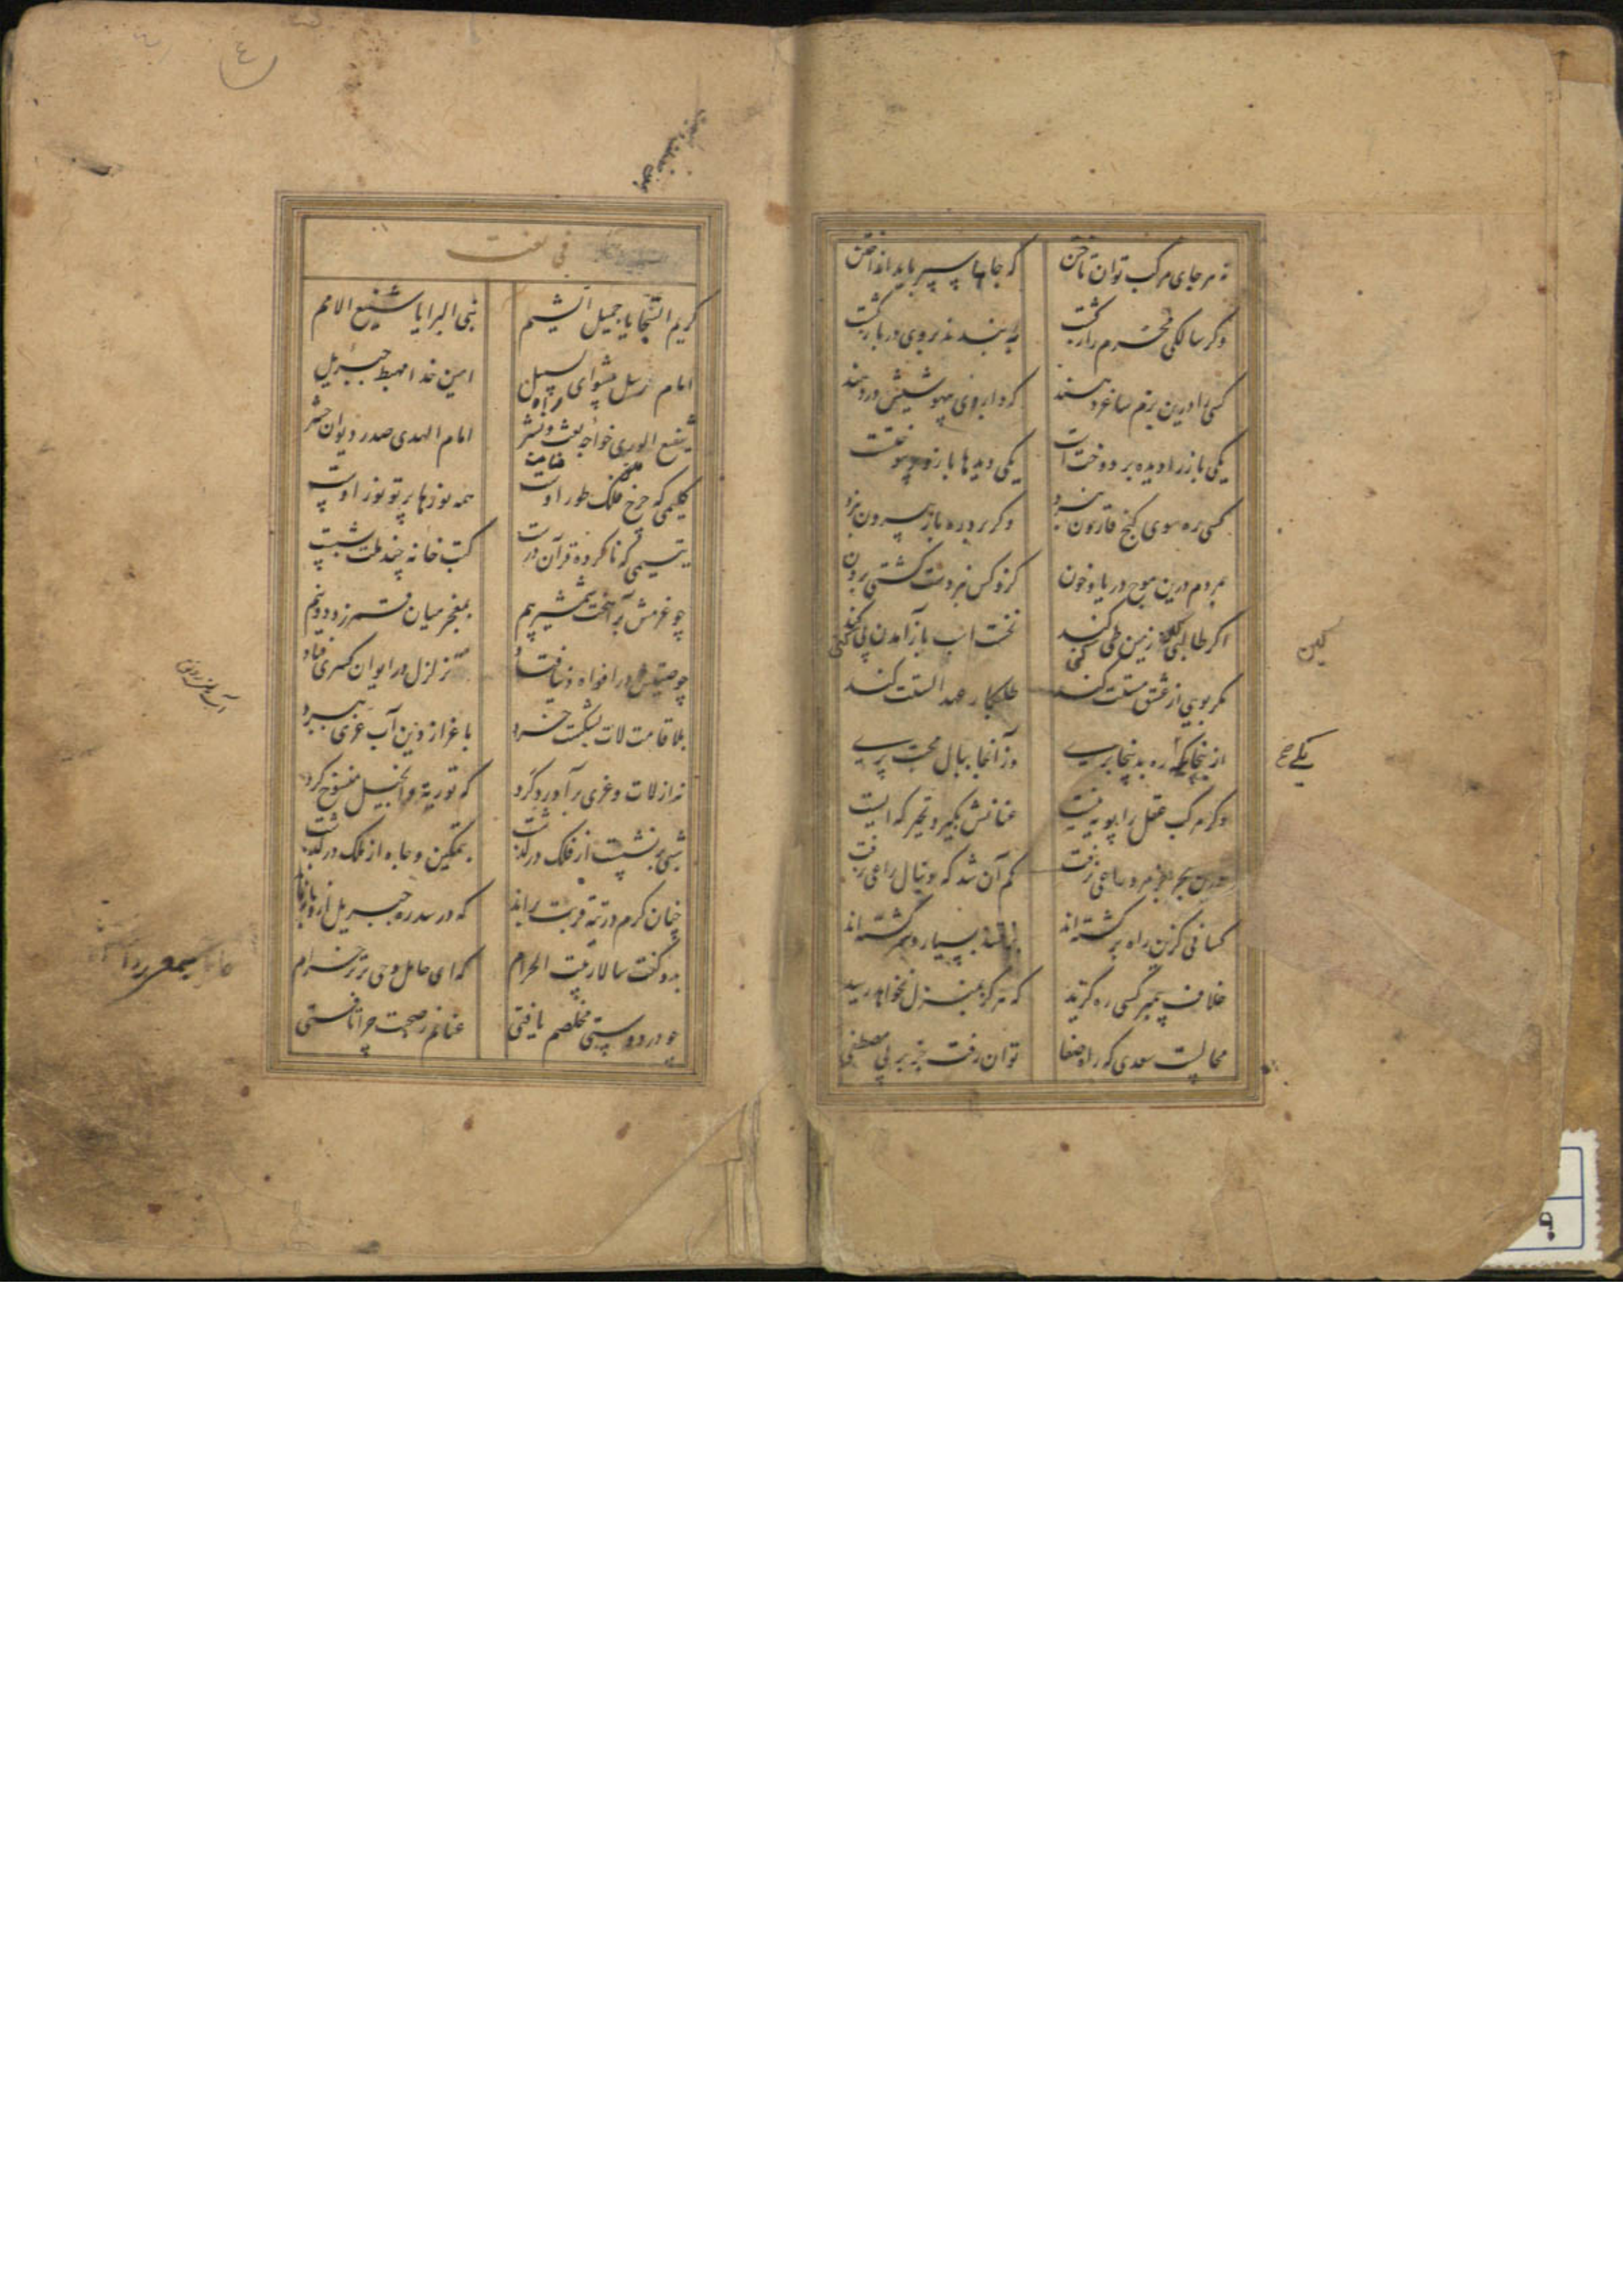 نه هر جای مرکب توان تاختن که جاها سپر باید انداختن
وگر سالکی محرم راز گشت به بندند بروی در بازگشت
کسی را درین بزم ساغر دهند که داروی بیهوشیش در دهند
یکی باز را دیده بر دوخت است یکی دیدها باز و پر سوختت
کسی ره سوی گنج قارون نبرد وگر برد ره باز بیرون نبرد
بمردم درین موج دریاء خون کزو کس نبردست کشتی برون
اگر طالبی کین زمین طی کنی نخست اسب باز آمدن پی کنی
مگر بویی از عشق مستت کند طلبکار عهد الستت کند
از ینجا که ره بدینجا بری وز آنجا ببال محبت پری
وگر مرکب عقل را پویه نیست عنانش بگیرد تحیر که ایست
درین بحر جز مرد ساعی نرفت کم آن شد که دنبال راعی نرفت
کسانی کزین راه برگشته‌اند برفتند بسیار و سرگشته‌اند
خلاف پیمبر کسی ره گزید که هرگز بمنزل نخواهد رسید
محالست سعدی که راه صفا توان رفت جز بر پی مصطفی
کین
یکی خ
فی نعت
کریم السجایا جمیل الشیم نبی البرایا شفیع الامم
امام رسل پیشوای سبیل امین خدا مهبط جبریل
راه
شفیع الوری خواجه بعث و نشر امام الهدی صدر دیوان حشر
کلیمی که چرخ فلک طور اوست همه نورها پرتو نور اوست
یتیمی که ناکرده قرآن درست کتب خانه چند ملت بشست
چو عزمش برآهخت شمشیر بیم بمعجز میان قمر زد دو نیم
چو صیتش در افواه دنیا فتاد تزلزل در ایوان کسری فتاد
بلا قامت لات بشکست خرد باعزاز دین آب عزی ببرد
نه از لات و عزی برآورد گرد که توریة و انجیل منسوخ کرد
شبی بر نشست از فلک در گذشت بتمکین و جاه از ملک در گذشت
چنان گرم در تیه قربت براند که در سدره جبریل ازو باز ماند
بدو گفت سالار بیت الحرام که ای حامل وحی برتر خرام
چو در دوستی مخلصم یافتی عنانم ز صحبت چرا تافتی
٤